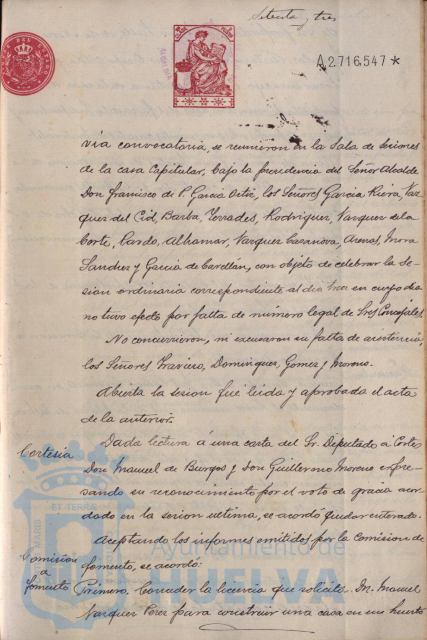 Setenta y tres
A2.716.547*
via convocatoria, se reunieron en la Sala de Sesiones
de la casa Capitular, bajo la presidencia del Señor Alcalde
Don Francisco de P. Garcia Ortiz, los Señores Garcia Riera, Vaz-
quez del Cid, Barba, Terrades, Rodriguez, Vazquez de la
Corte, Pardo, Alhamar, Vazquez Casanova, Arenas, Mora
Sanchez y Garcia de Cardllán, con objeto de celebrar la Se-
sion ordinaria correspondiente al dia tres en cuyo dia
no tuvo efecto por falta de número legal de Sres Concejales.
No concurrieron, ni escusaron su falta de asistencia,
los Señores Traviero, Dominguez, Gomez y Moreno.
Abierta la sesion fué leida y aprobada el acta
de la anterior.
Cortesia
Dada lectura á una carta del Sr. Diputado á Cortes
Don Manuel de Burgos y Don Guillermo Moreno expre-
sando su reconocimiento por el voto de gracia acor-
dado en la sesion ultima, se acordó quedar enterado.
Aceptando los informes emitidos por la Comision de
Fomento, se acordó:
Comision
a
fomento
Primero, Conceder la licencia que solicita Dn. Manuel
Vazquez Perez para construir una casa en su huerto
ET TERRÆ
MARIS
Ayuntamiento de
HUELVA